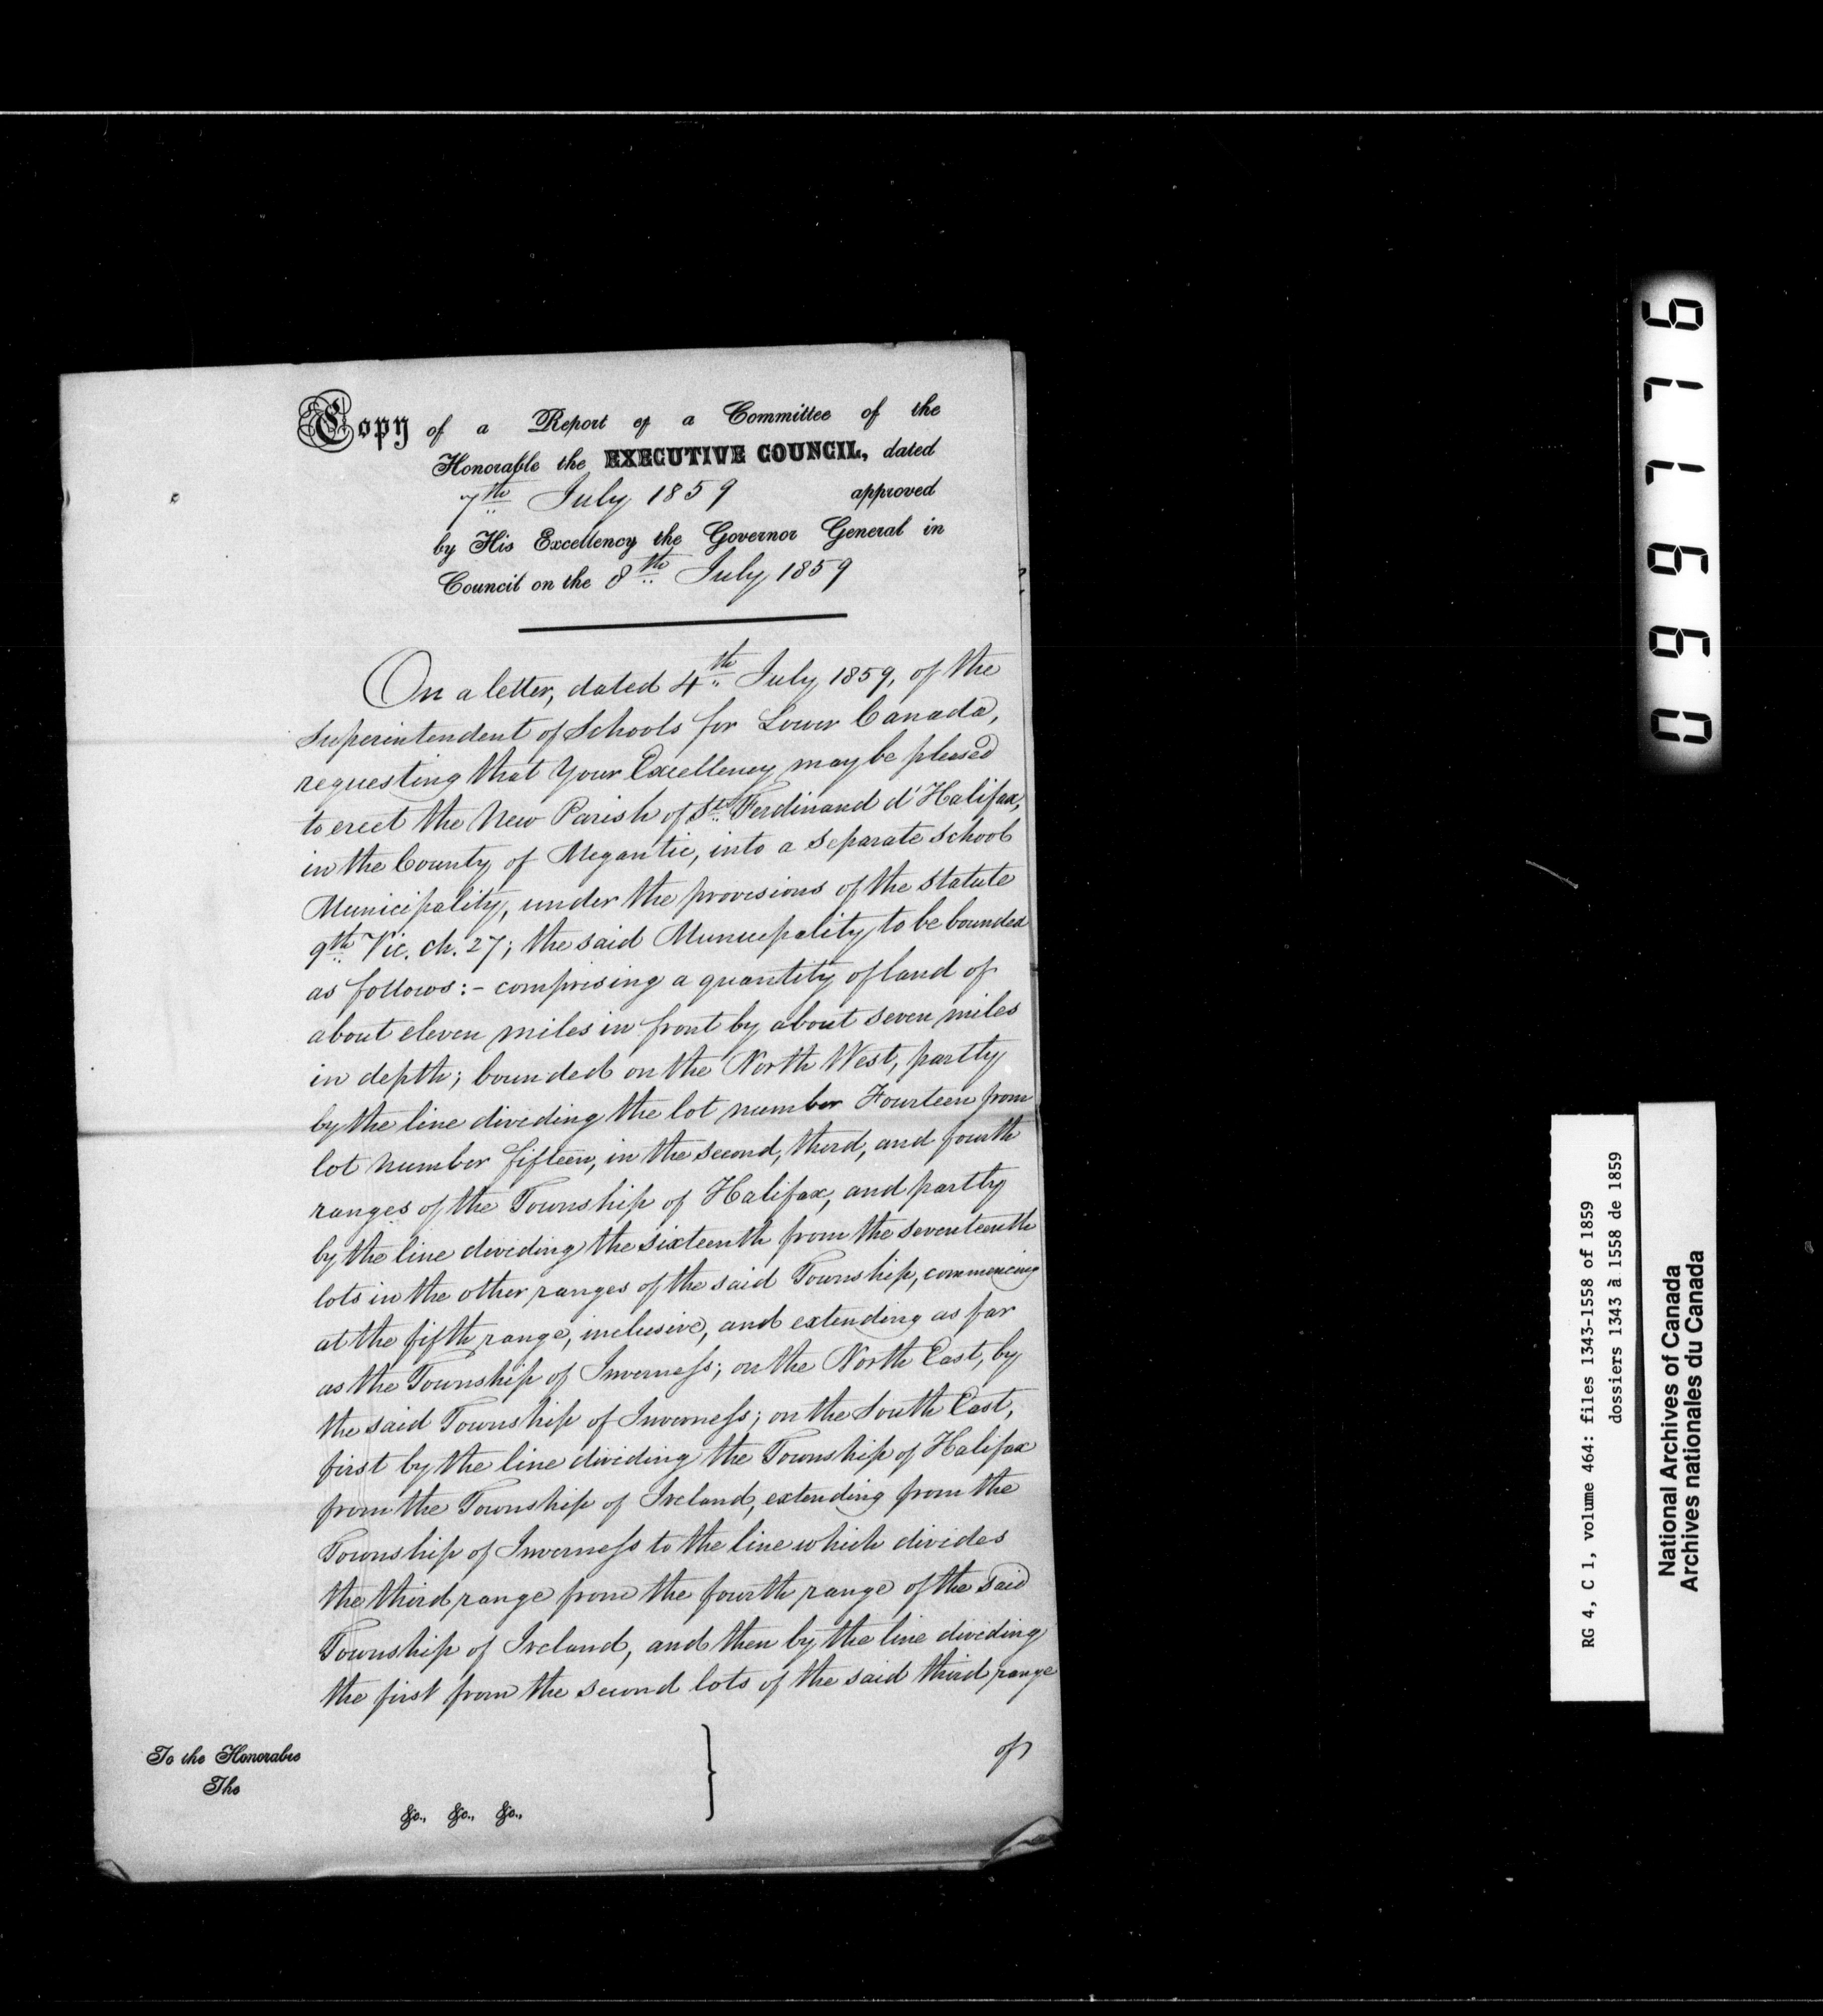 Copy of a Report of a Committee of the
Honorable the EXECUTIVE COUNCIL, dated
7th July 1859 approved
by His Excellency the Governor General in
Council on the 8th July 1859
On a letter, dated 4th July 1859, of the
Superintendent of Schools for Lower Canada,
requesting that Your Excellency may be pleased
to erect the New Parish of St. Ferdinand d'Halifax,
in the County of Megantic, into a separate school
Municipality, under the provisions of the statute
9th Vic. ch. 27; the said Municipality to be bounded
as follows:- comprising a quantity of land of
about eleven miles in front by about seven miles
in depth; bounded on the North West, partly
by the line dividing the lot number Fourteen from
lot number fifteen, in the second, third, and fourth
ranges of the Township of Halifax, and partly
by the line dividing the sixteenth from the seventeenth
lots in the other ranges of the said Township, commencing
at the fifth range, inclusive, and extending as far
as the Township of Inverness; on the North East, by
the said Township of Inverness; on the South East,
first by the line dividing the Township of Halifax
from the Township of Ireland, extending from the
Township of Inverness to the line which divides
the third range from the fourth range of the said
Township of Ireland, and then by the line dividing
the first from the second lots of the said third range
of
To the Honorable
The
&c., &c., &c.,
097716
RG 4, C 1, volume 464: files 1343-1558 of 1859
dossiers 1343 à 1558 de 1859
National Archives of Canada
Archives nationales du Canada